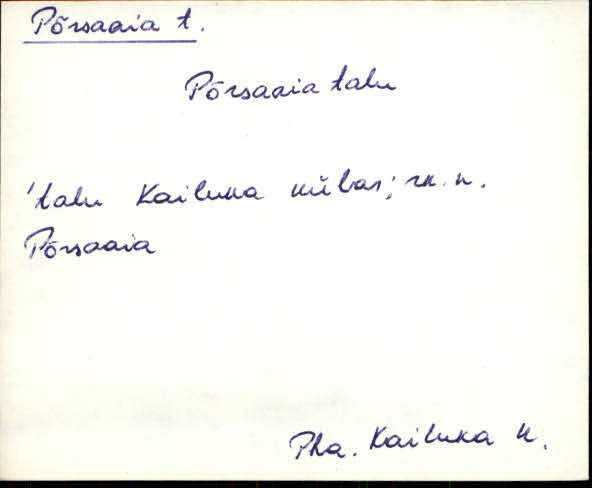 Põrsaaia t.
Põrsaaia talu
'talu Kailuka külas; rk. n.
Põrsaaia
Pha. Kailuka k.